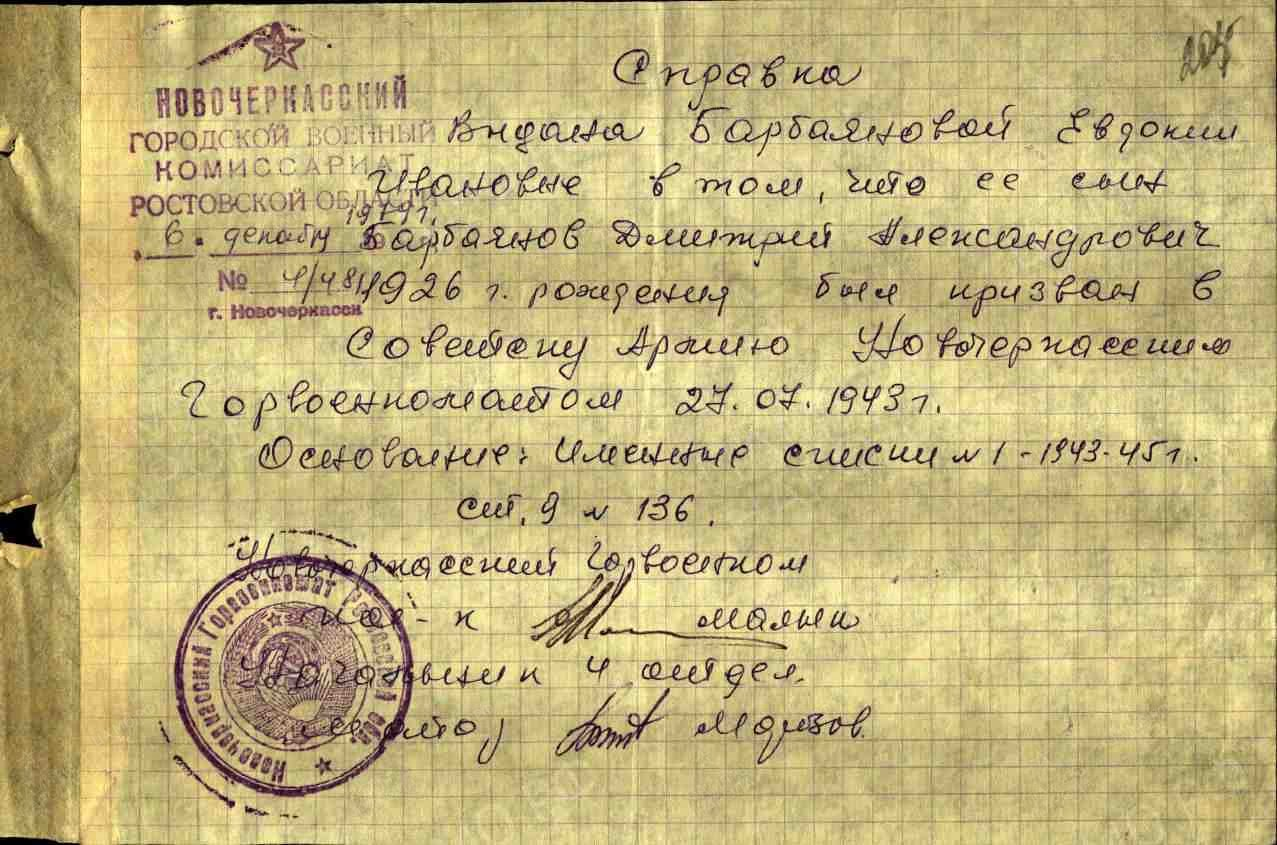 205
Справка
НОВОЧЕРКАССКИЙ
ГОРОДСКОЙ ВОЕННЫЙ
КОМИССАРИАТ
РОСТОВСКОЙ ОБЛАСТИ
„6" декабря 1979 г.
№ 4/481
г. Новочеркасск
Выдана Барбаяновой Евдокии
Ивановне в том, что ее сын
Барбаянов Дмитрий Александрович
1926 г. рождения был призван в
Советску Армию Новочеркасским
Горвоенкоматом 27.07.1943 г.
Основание: Именные списки № 1 - 1943-45 г.
ст. 9 № 136.
Новочеркасский Горвоенком
Малый
Начальник 4 отдел.
майор Морозов.
Новочеркасский Горвоенкомат Ростовской обл.